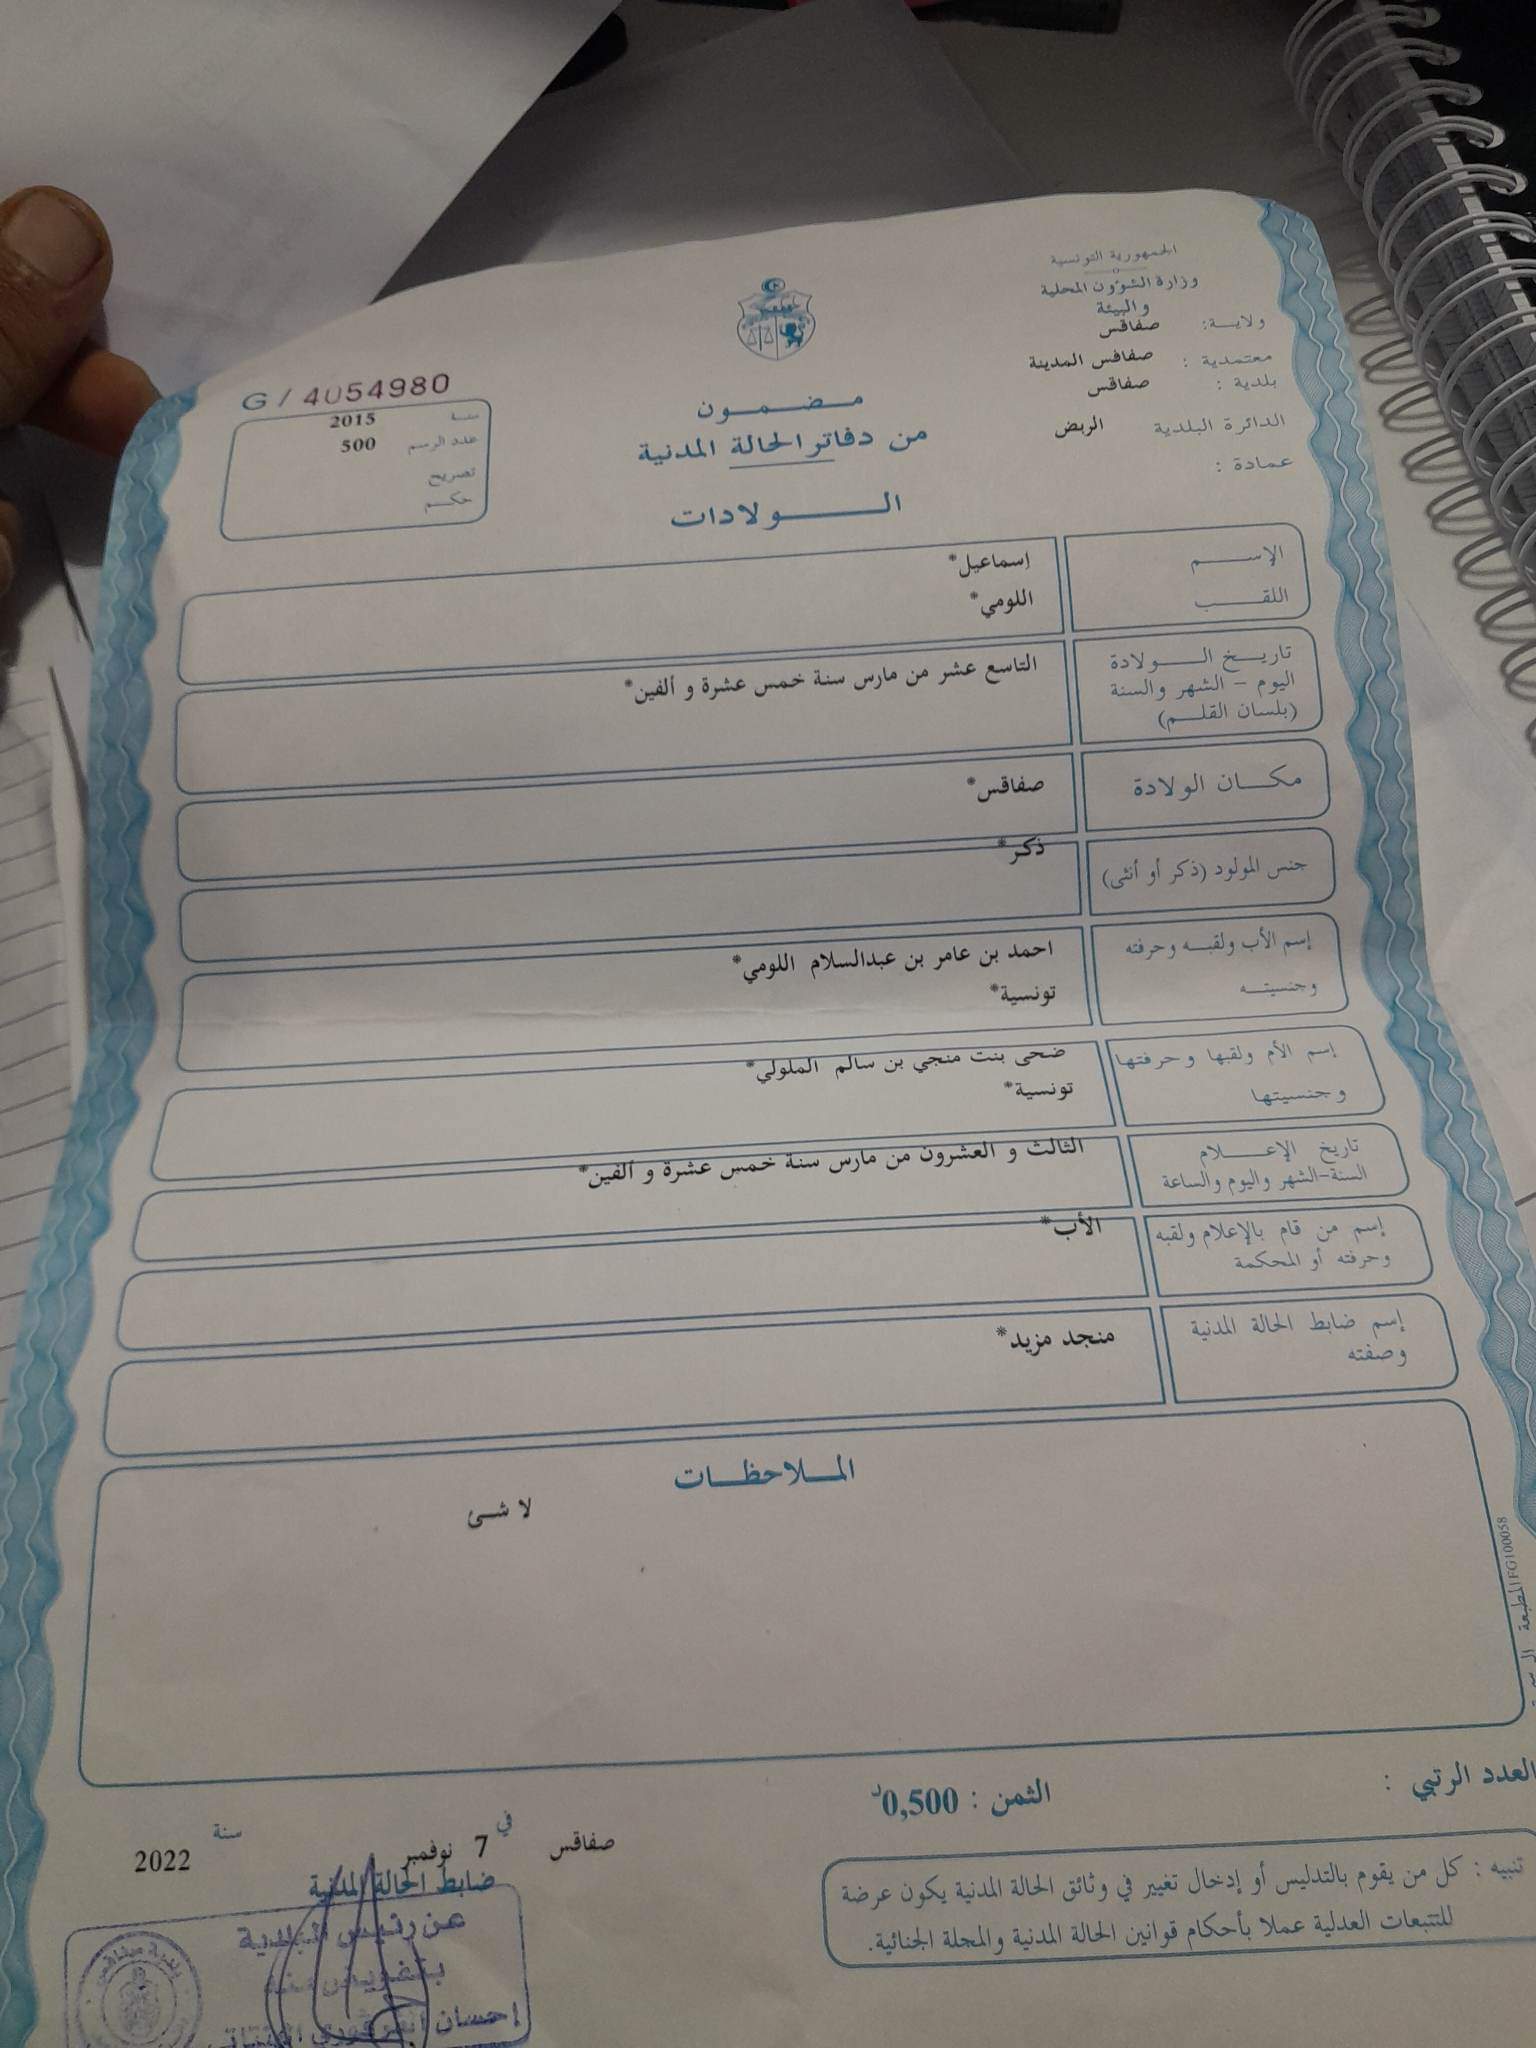 الجمهورية التونسية
وزارة الشؤون المحلية
والبيئة
ولايـة: صفاقس
معتمدية : صفاقس المدينة
بلدية : صفاقس
الدائرة البلدية الربض
عمادة :
G / 4054980
سنة 2015
عدد الرسم 500
تصريح
حكـم
مـضـمـون
من دفاتر الحالة المدنية
الـولادات
الإسـم إسماعيل*
اللقـب اللومي*
تاريـخ الـولادة
اليوم – الشهر والسنة
(بلسان القلـم)
التاسع عشر من مارس سنة خمس عشرة و ألفين*
مكـان الولادة صفاقس*
جنس المولود (ذكر أو أنثى) ذكر*
إسم الأب ولقبـه وحرفته احمد بن عامر بن عبدالسلام اللومي*
وجنسيتـه تونسية*
إسم الأم ولقبها وحرفتها ضحى بنت منجي بن سالم الملولي*
وجنسيتها تونسية*
تاريخ الإعـلام
السنة-الشهر واليوم والساعة
الثالث و العشرون من مارس سنة خمس عشرة و ألفين*
إسم من قام بالإعلام ولقبه
وحرفته أو المحكمة
الأب*
إسم ضابط الحالة المدنية
وصفته
منجد مزيد*
المـلاحظـات
لا شئ
FG100058 المطبعة
العدد الرتبي :
الثمن : 0,500د
تنبيه : كل من يقوم بالتدليس أو إدخال تغيير في وثائق الحالة المدنية يكون عرضة
للتتبعات العدلية عملا بأحكام قوانين الحالة المدنية والمجلة الجنائية.
صفاقس في 7 نوفمبر سنة 2022
ضابط الحالة المدنية
عن رئيس البلدية
بتفويض منه
إحسان